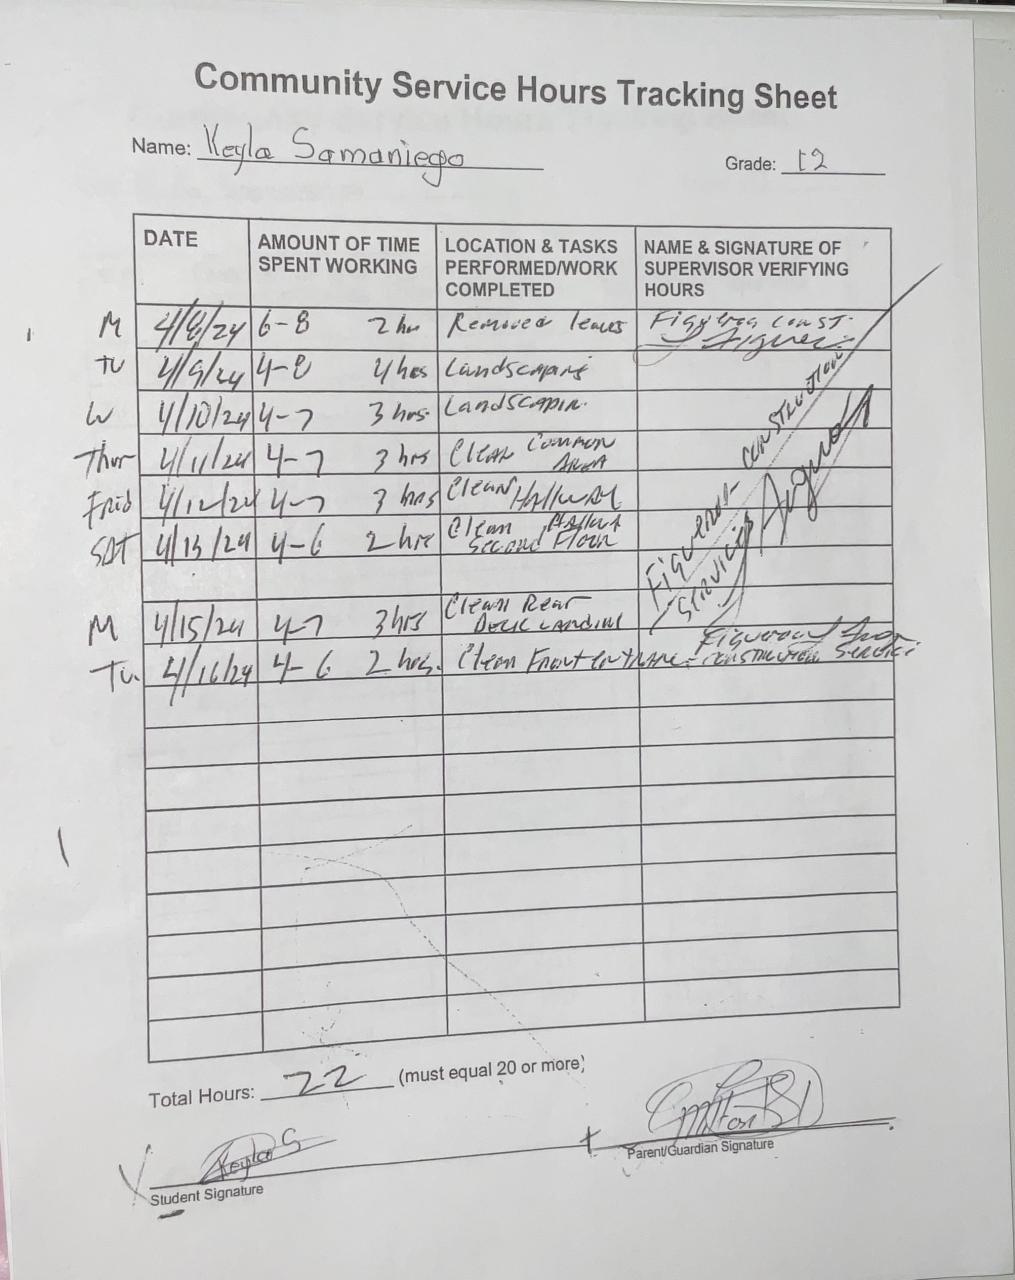 Community Service Hours Tracking Sheet
Name: Keyla Samaniego
Grade: 12
DATE
AMOUNT OF TIME
SPENT WORKING
LOCATION & TASKS
PERFORMED/WORK
COMPLETED
NAME & SIGNATURE OF
SUPERVISOR VERIFYING
HOURS
M 4/8/24 6-8 2 hr Removed leaves Figueroa const.
Tu 4/9/24 4-8 4 hrs Landscaping
W 4/10/24 4-7 3 hrs. Landscappin.
Thur 4/11/24 4-7 3 hrs Clean Common
Area
Frid 4/12/24 4-7 3 hrs Clean Hallway
SAT 4/13/24 4-6 2 hrs Clean
Second Floor
Figueroa-CONSTRUCTION
SERVICES
M 4/15/24 4-7 3 hrs Clean Rear
Deck Landing
Tu. 4/16/24 4-6 2 hrs. Clean Front entrance Figueroa
construction Service
Total Hours: 22 (must equal 20 or more)
Keyla S
Student Signature
Parent/Guardian Signature